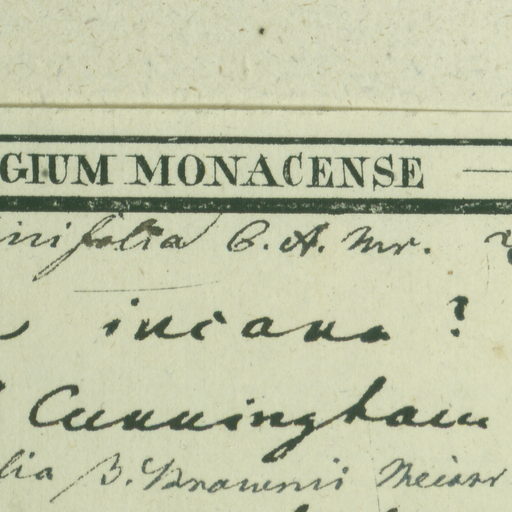 GIUM MONACENSE
inifolia C. A. Mr.
incana ?
Cunningham
lia β. Brownii Meissr